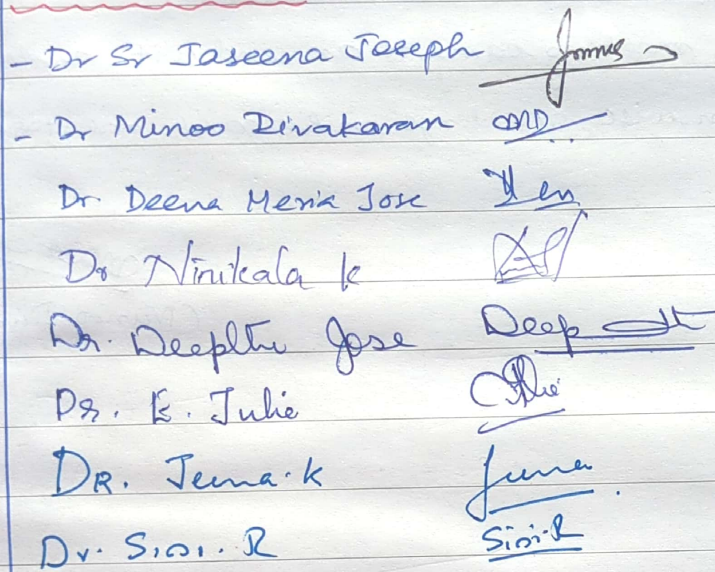 - Dr Sr Jaseena Joseph
- Dr Minoo Divakaran
Dr. Deena Meria Jose
Dr Ninikala K
Dr. Deepthi Jose Deepth
Dr. E. Julie Julie
DR. Jeena.K Jeena
Dr. Sini. R Sini.R